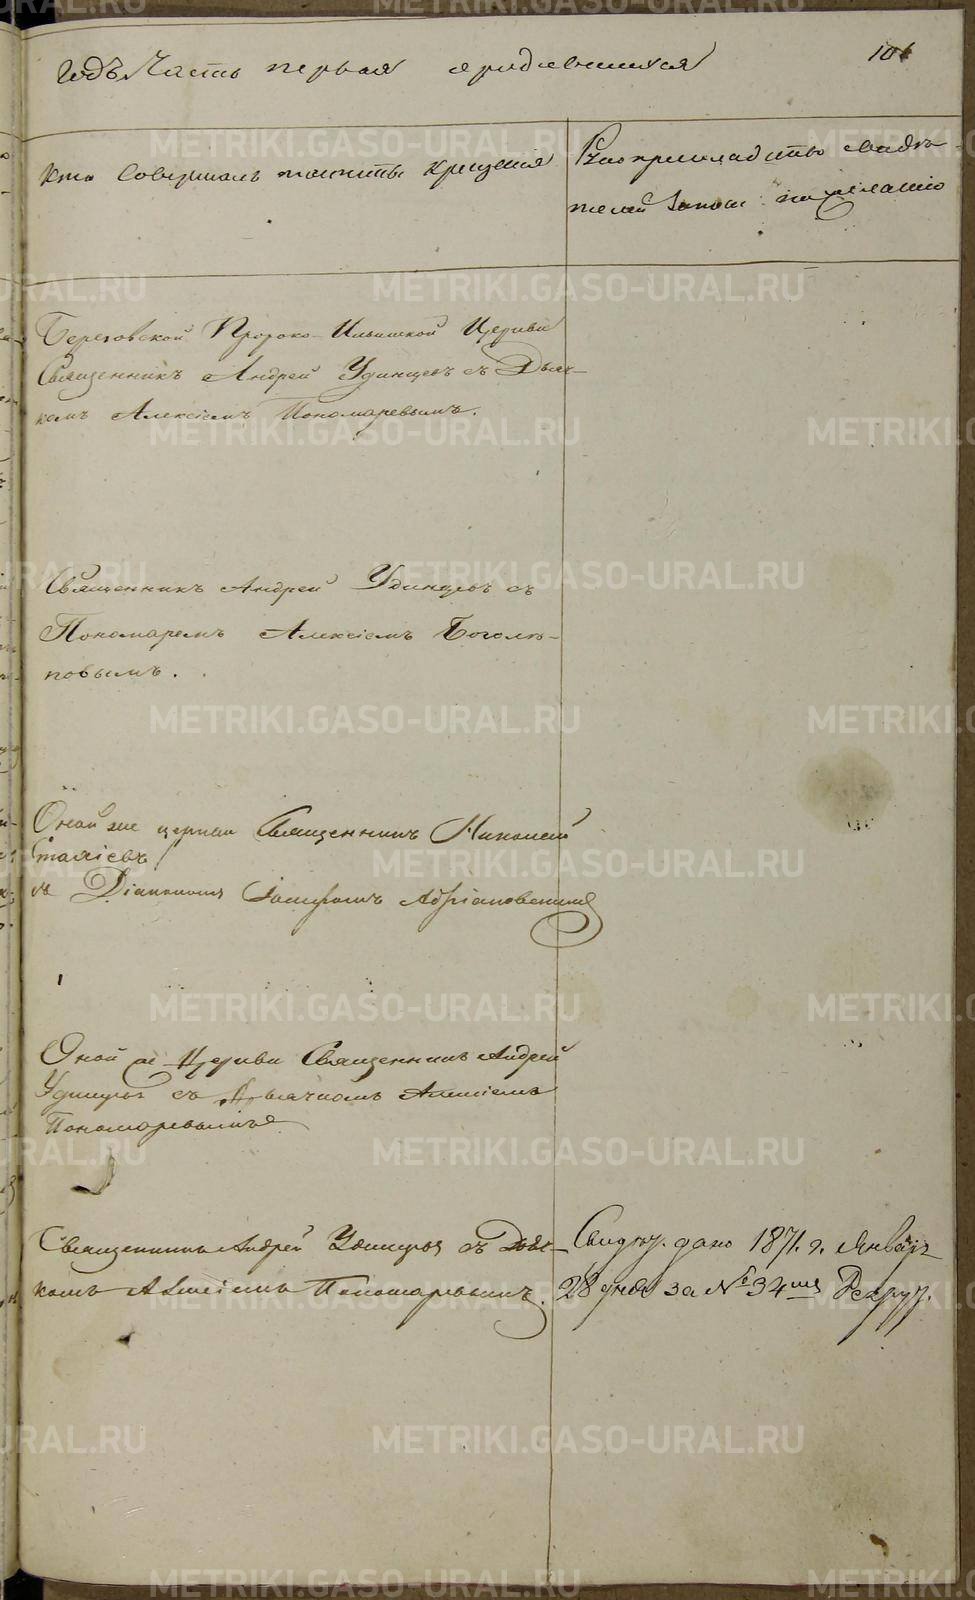 годъ Часть первая о родившихся 106
Кто совершалъ таинство крещенія
Рукоприкладство свидѣ-
телей записи по желанію
Березовской Пророко-Ильинской Церкви
Священникъ Андрей Удинцевъ съ Дьяч-
комъ Алексіемъ Пономаревымъ.
Священникъ Андрей Удинцевъ съ
Пономаремъ Алексіемъ Боголю-
повымъ.
Оной же церкви Священникъ Николай
съ Діакономъ Іосифомъ Адріановскимъ
Оной же Церкви Священникъ Андрей
Удинцевъ съ Дьячкомъ Алексіемъ
Пономаревымъ
Священникъ Андрей Удинцевъ съ Дьяч-
комъ Алексіемъ Пономаревымъ.
Свидѣт. дано 1871. г. Январ.
28 дня за № 34мъ Рекрут.
METRIKI.GASO-URAL.RU